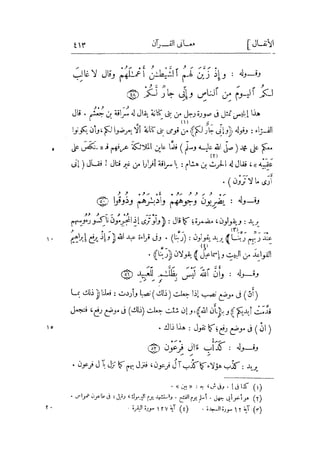 الأنفال ] معانى القرآن ٤١٣
وقـوله : وَإِذْ زَيَّنَ لَهُمُ ٱلشَّيْطَٰنُ أَعْمَٰلَهُمْ وَقَالَ لَا غَالِبَ
لَكُمُ ٱلْيَوْمَ مِنَ ٱلنَّاسِ وَإِنِّى جَارٌ لَّكُمْ ﴿٤٨﴾
هذا إبليس تمثل فى صورة رجل من بنى كنانة يقال له سُراقة بن جُعْشُم . قال
الفرّاء : وقوله ( وَإِنِّى جَارٌ لَكُمْ ) من قومى بنى كنانة ألّا يعرضوا لكم ، وأن يكونوا
معكم على محمد ( صلى الله عليه وسلم ) فلمّا عاين الملائكة عرفهم فـ « ـنكص على ٥
عقبيه » ، فقال له الحرث بن هشام : يا سراقة أفرارا من غير قتال ! فقال ( إنى
أرى ما لا ترون ) .
وقـوله : يَضْرِبُونَ وُجُوهَهُمْ وَأَدْبَٰرَهُمْ وَذُوقُوا ﴿٥٠﴾
يريد : ويقولون ، مضمرة ؛ كما قال : ( وَلَوْ تَرَى إِذِ الْمُجْرِمُونَ نَاكِسُو رُءُوسِهِمْ
عِنْدَ رَبِّهِمْ رَبَّنَا ) يريد يقولون : ( ربّنا ) . وفى قراءة عبد الله ( وإذ يرفع إبراهيم ١٠
القواعد من البيت وإسماعيل ) يقولان ( ربّنا ) .
وقـوله : وَأَنَّ ٱللَّهَ لَيْسَ بِظَلَّٰمٍ لِّلْعَبِيدِ ﴿٥١﴾
( أنّ ) فى موضع نصب إذا جعلت ( ذلك ) نصبا وأردت : فعلنا ( ذلك بما
قدّمت أيديكم و ) بـ ( أنّ الله ) ، وإن شئت جعلت ( ذلك ) فى موضع رفع ، فتجعل
( أنّ ) فى موضع رفع ؛ كما تقول : هذا ذاك . ١٥
وقـوله : كَدَأْبِ ءَالِ فِرْعَوْنَ ﴿٥٢﴾
يريد : كذّب هؤلاء كما كذّب آل فرعون ، فنزل بهم كما نزل بآل فرعون .
(١) كذا فى ا . وفى ش ، ج : « بين » .
(٢) هو أخو أبى جهل . أسلم يوم الفتح . واستشهد يوم اليرموك ، وقيل : فى طاعون عمواس .
(٣) آية ١٢ سورة السجدة . (٤) آية ١٢٧ سورة البقرة . ٢٠